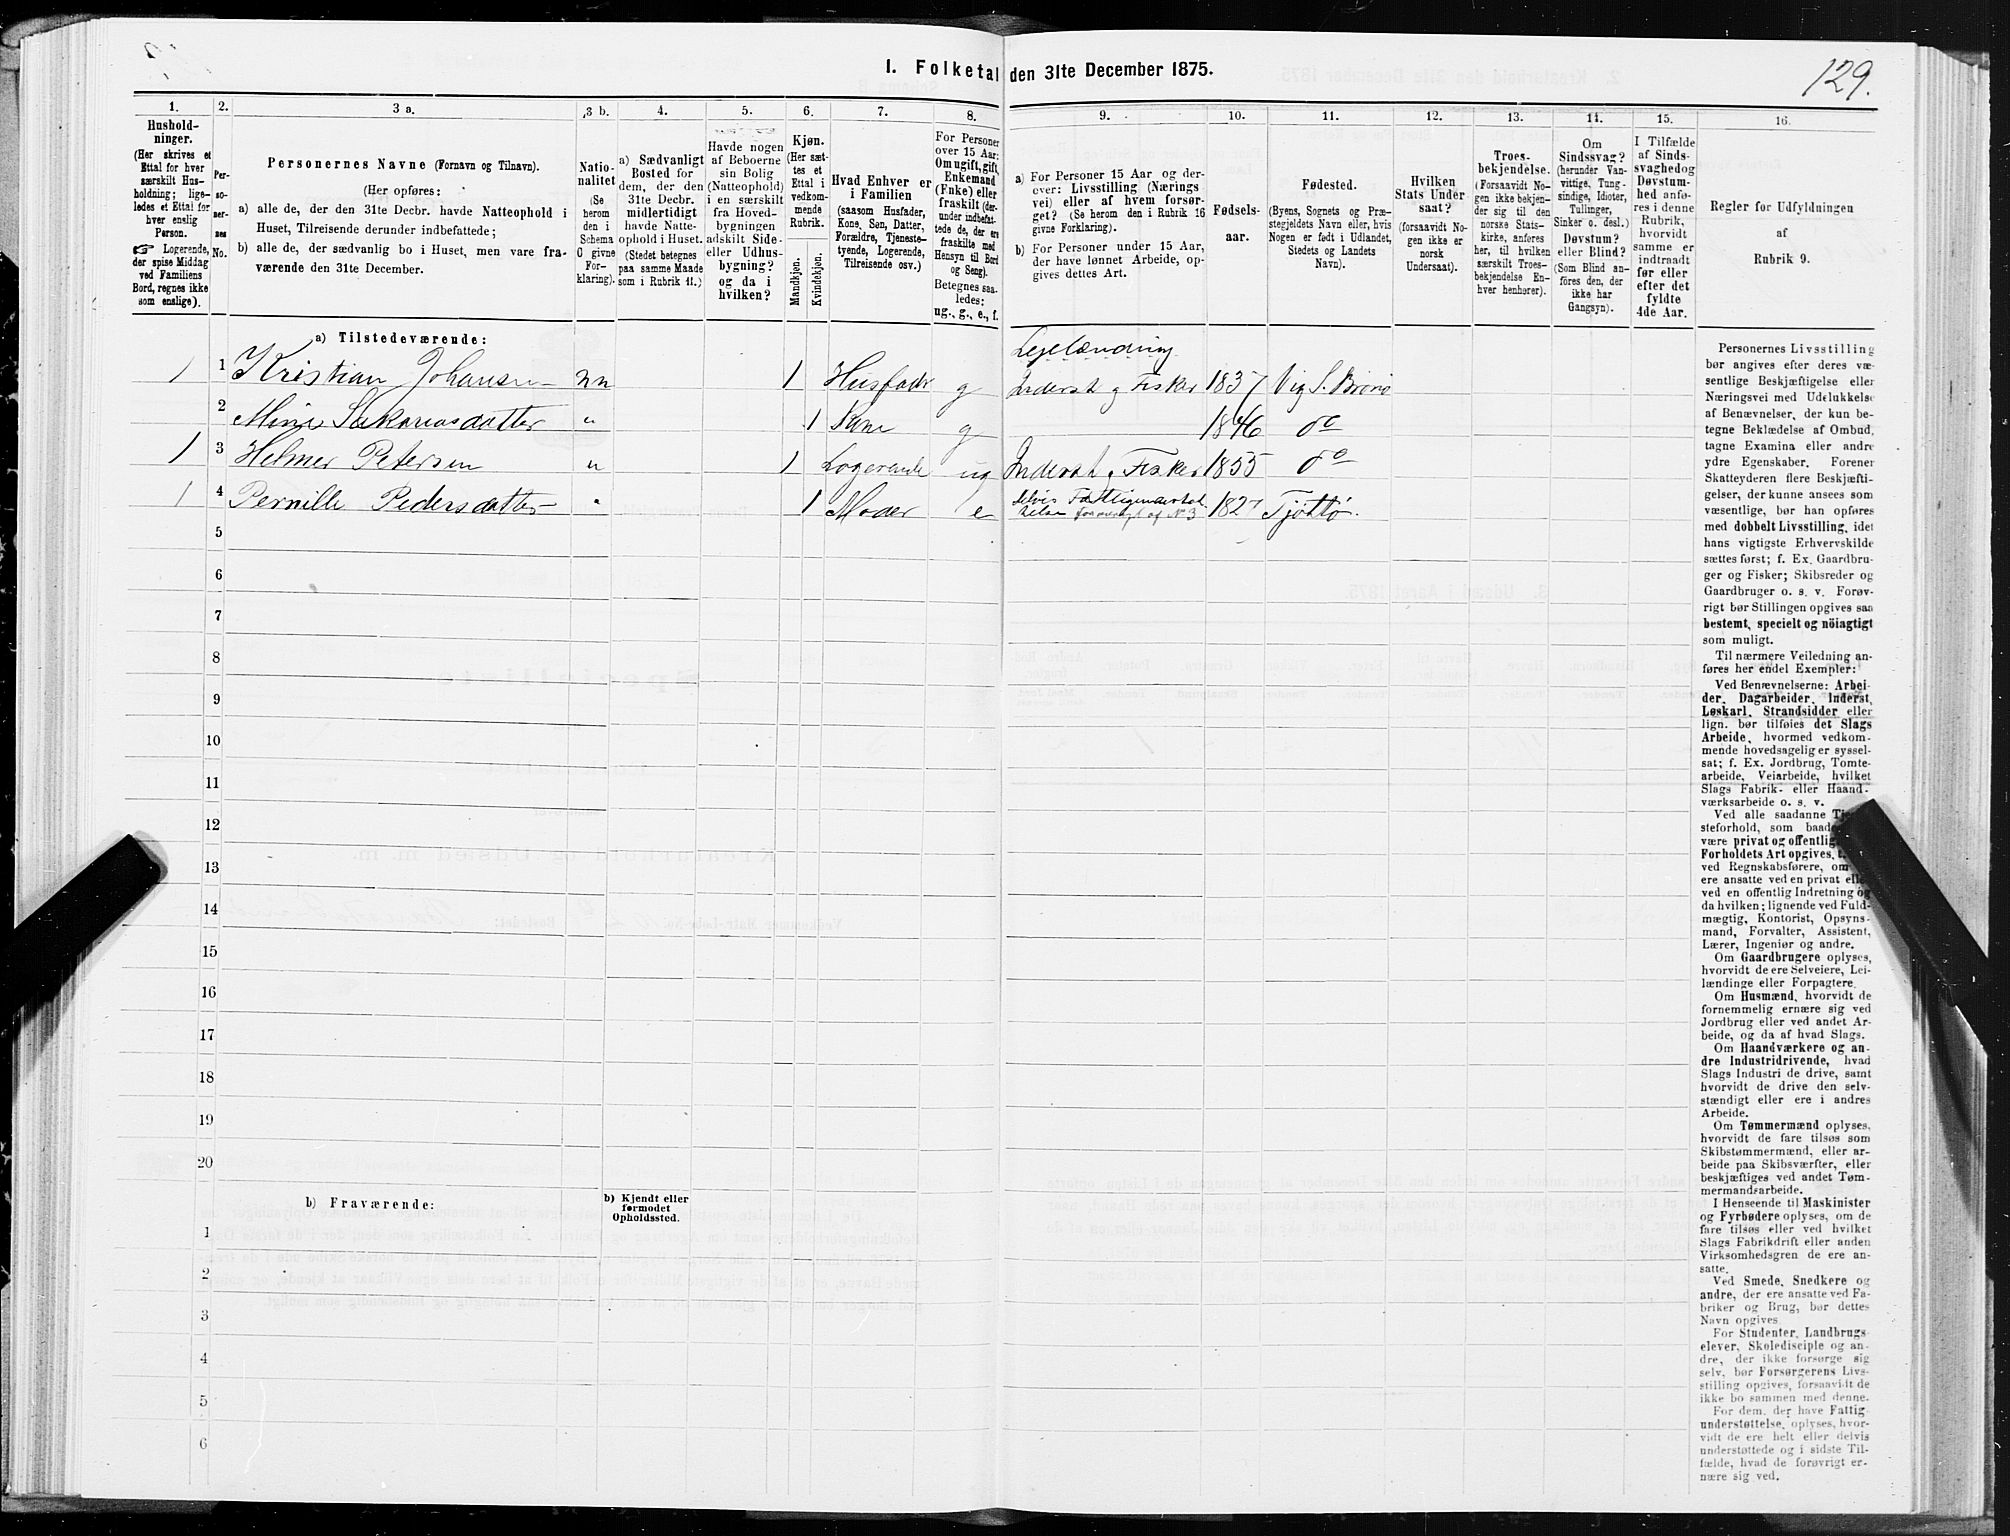 129.
I. Folketal den 31te December 1875.
1. 2. 3 a. 3 b. 4. 5. 6. 7. 8. 9. 10. 11. 12. 13. 14. 15. 16.
Hushold-
ninger.
(Her skrives et
Ettal for hver
særskilt Hus-
holdning; lige-
ledes et Ettal for
hver enslig
Person.
☞ Logerende,
der spise Middag
ved Familiens
Bord, regnes ikke
som enslige).
Per-
so-
ner-
nes
No.
Personernes Navne (Fornavn og Tilnavn).
(Her opføres:
a) alle de, der den 31te Decbr. havde Natteophold i
Huset, Tilreisende derunder indbefattede;
b) alle de, der sædvanlig bo i Huset, men vare fra-
værende den 31te December.
Natio-
nalitet
(Se
herom
den i
Schema
C givne
For-
klaring).
a) Sædvanligt
Bosted for
dem, der den
31te Decbr.
midlertidigt
havde Natte-
ophold i Huset.
(Stedet betegnes
paa samme Maade
som i Rubrik 11.)
Havde nogen
af Beboerne
sin Bolig
(Natteophold)
i en særskilt
fra Hoved-
bygningen
adskilt Side-
eller Udhus-
bygning?
og da i
hvilken?
Kjøn.
(Her sæt-
tes et
Ettal i
vedkom-
mende
Rubrik.
Mandkjøn.
Kvindekjøn.
Hvad Enhver er
i Familien
(saasom Husfader,
Kone, Søn, Datter,
Forældre, Tjeneste-
tyende, Logerende,
Tilreisende osv.)
For Personer
over 15 Aar:
Om ugift, gift,
Enkemand
(Enke) eller
fraskilt (der-
under indbefat-
tede de, der ere
fraskilte med
Hensyn til Bord
og Seng).
Betegnes saa-
ledes:
ug., g., e., f.
a) For Personer 15 Aar og der-
over: Livsstilling (Nærings-
vei) eller af hvem forsør-
get? (Se herom den i Rubrik 16
givne Forklaring).
b) For Personer under 15 Aar,
der have lønnet Arbeide, op-
gives dettes Art.
Fødsels-
aar.
Fødested.
(Byens, Sognets og Præ-
stegjeldets Navn eller, hvis
Nogen er født i Udlandet,
Stedets og Landets
Navn).
Hvilken
Stats Under-
saat?
(forsaavidt No-
gen ikke er
norsk
Undersaat).
Troes-
bekjendelse.
(Forsaavidt No-
gen ikke bekjen-
der sig til den
norske Stats-
kirke, anføres
her, til hvilken
særskilt Troes-
bekjendelse En-
hver henhører).
Om
Sindssvag?
(herunder Van-
vittige, Tung-
sindige, Idioter,
Tullinger,
Sinker o. desl.)
Døvstum?
eller Blind?
(Som Blind an-
føres den, der
ikke har
Gangsyn).
I Tilfælde
af Sinds-
svaghed og
Døvstum-
hed anfø-
res i denne
Rubrik,
hvorvidt
samme er
indtraadt
før eller
efter det
fyldte
4de Aar.
Regler for Udfyldningen
af
Rubrik 9.
a) Tilstedeværende:
Lejelænding
1 1 Kristian Johansen nn 1 Husfader g Inderst og Fisker 1837 Vig S. Brønø
2 Mine Sakariasdatter " 1 Kone g 1846 do
1 3 Helmer Petersen " 1 Logerende ug Inderst og Fisker 1855 do
1 4 Pernille Pedersdatter " 1 Moder e delvis Fattigunderstøt
telse forøvrigt af No 3 1827 Tjøttø.
5
6
7
8
9
10
11
12
13
14
15
16
17
18
19
20
b) Fraværende:
b) Kjendt eller
formodet
Opholdssted.
1
2
3
4
5
6
Personernes Livsstilling
bør angives efter deres væ-
sentlige Beskjæftigelse eller
Næringsvei med Udelukkelse
af Benævnelser, der kun be-
tegne Beklædelse af Ombud,
tagne Examina eller andre
ydre Egenskaber. Forener
Skatteyderen flere Beskjæfti-
gelser, der kunne ansees som
væsentlige, bør han opføres
med dobbelt Livsstilling, idet
hans vigtigste Erhvervskilde
sættes først; f. Ex. Gaardbru-
ger og Fisker; Skibsreder og
Gaardbruger o. s. v. Forøv-
rigt bør Stillingen opgives saa
bestemt, specielt og nöiagtigt
som muligt.
Til nærmere Veiledning an-
føres her endel Exempler:
Ved Benævnelserne: Arbei-
der, Dagarbeider, Inderst,
Løskarl, Strandsidder eller
lign. bør tilføies det Slags
Arbeide, hvormed vedkom-
mende hovedsagelig er syssel-
sat; f. Ex. Jordbrug, Tomte-
arbeide, Veiarbeide, hvilket
Slags Fabrik- eller Haand-
værksarbeide o. s. v.
Ved alle saadanne
steforhold, som
være privat og
Forholdets Art opgives,
ved Regnskabsførere, om
ere ansatte ved en privat
ved en offentlig Indretning og
da hvilken; lignende ved Fuld-
mægtig, Kontorist, Opsyns-
mand, Forvalter, Assistent,
Lærer, Ingeniør og andre.
Om Gaardbrugere oplyses,
hvorvidt de ere Selveiere, Lei-
lændinge eller Forpagtere.
Om Husmænd, hvorvidt de
fornemmelig ernære sig ved
Jordbrug eller ved andet Ar-
beide, og da af hvad Slags.
Om Haandværkere og an-
dre Industridrivende, hvad
Slags Industri de drive, samt
hvorvidt de drive den selv-
stændigt eller ere i andres
Arbeide.
Om Tømmermænd oplyses,
hvorvidt de fare tilsøs som
Skibstømmermænd, eller ar-
beide paa Skibsværfter, eller
beskjæftiges ved andet Tøm-
mermandsarbeide.
I Henseende til Maskinister
og Fyrbødere oplyses, om de
fare tilsøs eller ved hvilket
Slags Fabrikdrift eller anden
Virksomhedsgren de ere an-
satte.
Ved Smede, Snedkere og
andre, der ere ansatte ved Fa-
briker og Brug, bør dettes
Navn opgives.
For Studenter, Landbrugs-
elever, Skoledisciple og an-
dre, der ikke forsørge sig
selv, bør Forsørgerens Livs-
stilling opgives, forsaavidt de
ikke bo sammen med denne.
For dem, der have Fattig-
understøttelse, oplyses, hvor-
vidt de ere helt eller delvis
understøttede og i sidste Til-
fælde, hvad de forøvrigt er-
nære sig ved.